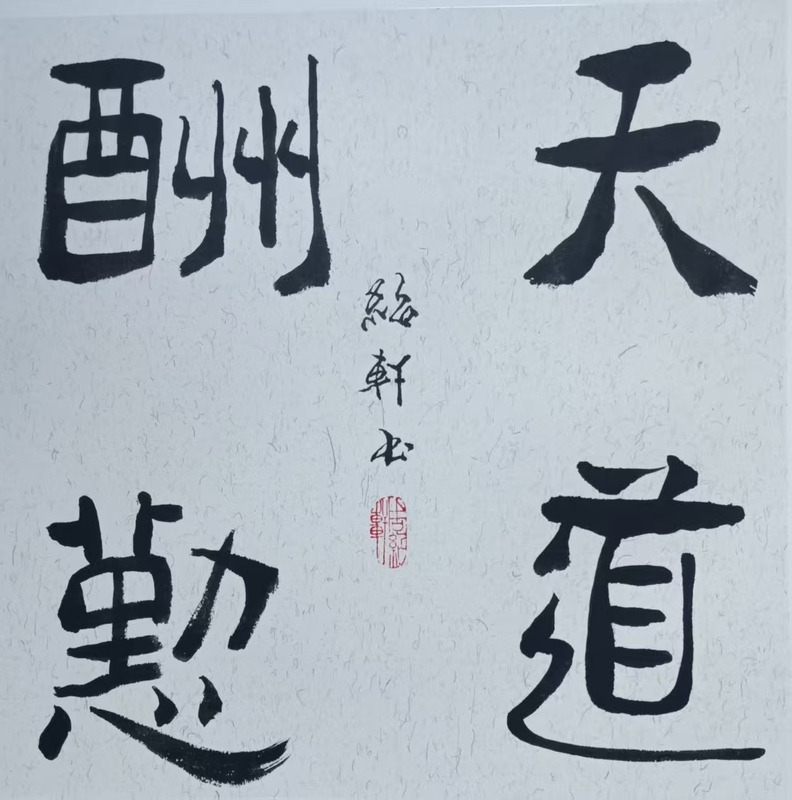 天道
酬懃
紹軒书